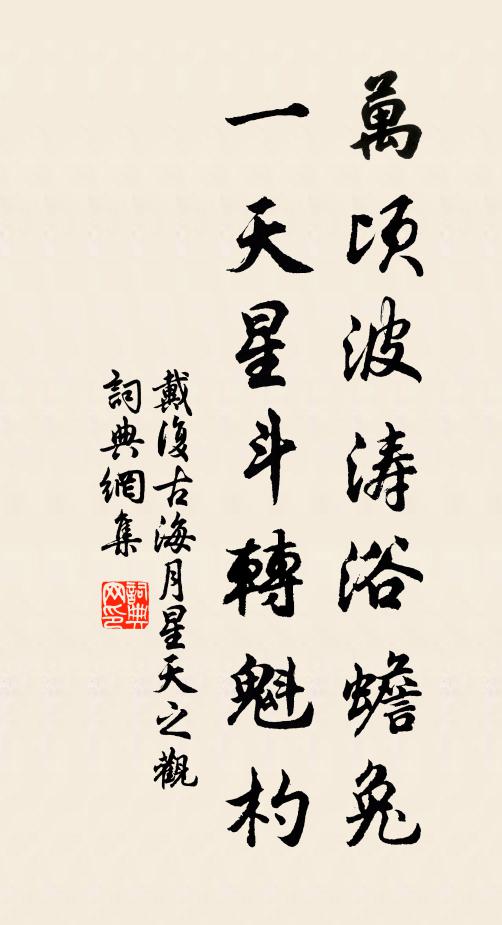 萬頃波涛浴蟾兔
一天星斗轉魁杓
戴復古海月星天之觀
詞典網集
詞典网印